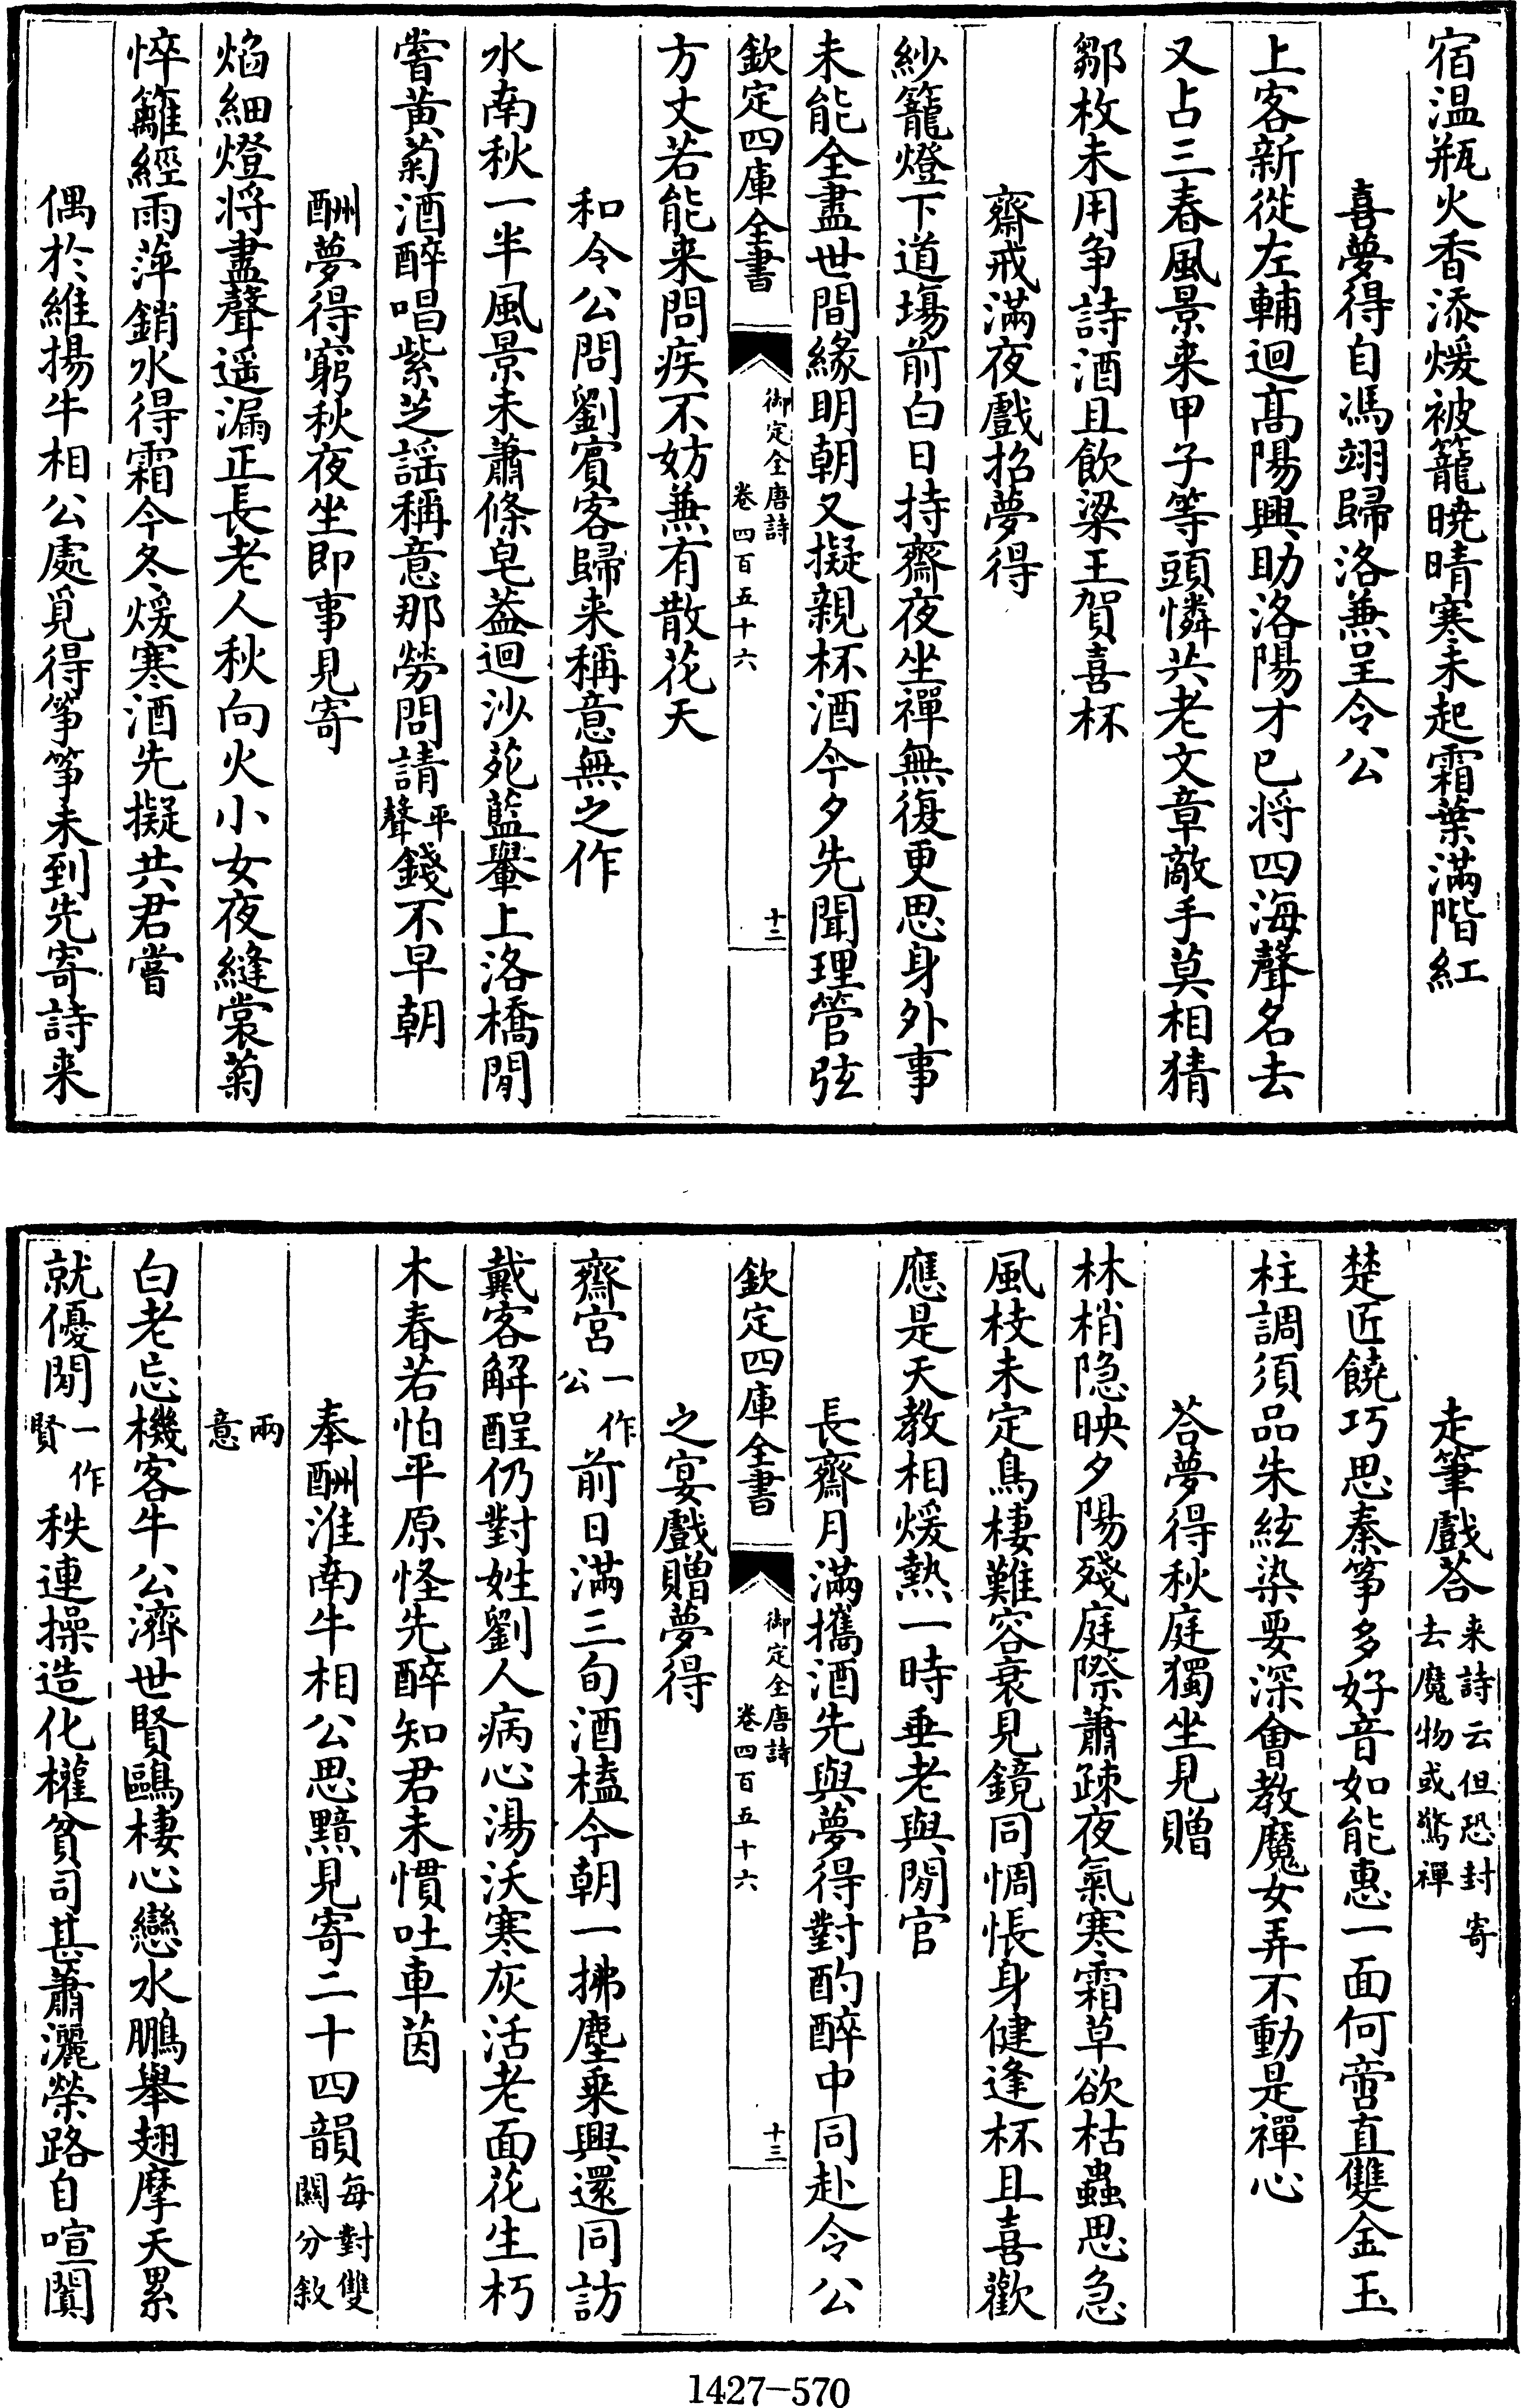 宿温瓶火香添煖被籠曉晴寒未起霜葉滿階紅
喜夢得自馮翊歸洛兼呈令公
上客新從左輔迴髙陽興助洛陽才已将四海聲名去
又占三春風景来甲子等頭憐共老文章敵手莫相猜
鄒枚未用争詩酒且飲梁王賀喜杯
齋戒滿夜戲招夢得
紗籠燈下道塲前白日持齋夜坐禪無復更思身外事
未能全盡世間緣明朝又擬親杯酒今夕先聞理管弦
欽定四庫全書
御定全唐詩
卷四百五十六
十二
方丈若能来問疾不妨兼有散花天
和令公問劉賔客歸来稱意無之作
水南秋一半風景未蕭條皂葢迴沙苑藍轝上洛橋閒
嘗黄菊酒醉唱紫芝謡稱意那勞問請平聲錢不早朝
酬夢得窮秋夜坐即事見寄
焰細燈将盡聲遥漏正長老人秋向火小女夜縫裳菊
悴籬經雨萍銷水得霜今冬煖寒酒先擬共君嘗
偶於維揚牛相公處覓得筝筝未到先寄詩来
走筆戲荅来詩云但恐封寄去魔物或驚禪
楚匠饒巧思秦筝多好音如能惠一面何啻直雙金玉
柱調須品朱絃染要深會教魔女弄不動是禪心
荅夢得秋庭獨坐見贈
林梢隐映夕陽殘庭際蕭疎夜氣寒霜草欲枯蟲思急
風枝未定鳥棲難容衰見鏡同惆悵身健逢杯且喜歡
應是天教相煖熱一時垂老與閒官
長齋月滿攜酒先與夢得對酌醉中同赴令公
欽定四庫全書
御定全唐詩
卷四百五十六
十三
之宴戲贈夢得
齋宫一作公前日滿三旬酒榼今朝一拂塵乗興還同訪
戴客解酲仍對姓劉人病心湯沃寒灰活老面花生朽
木春若怕平原怪先醉知君未慣吐車茵
奉酬淮南牛相公思黯見寄二十四韻每對雙關分敘
兩意
白老忘機客牛公濟世賢鷗棲心戀水鵬舉翅摩天累
就優閒一作賢秩連操造化權貧司甚蕭灑榮路自喧闐
1427-570